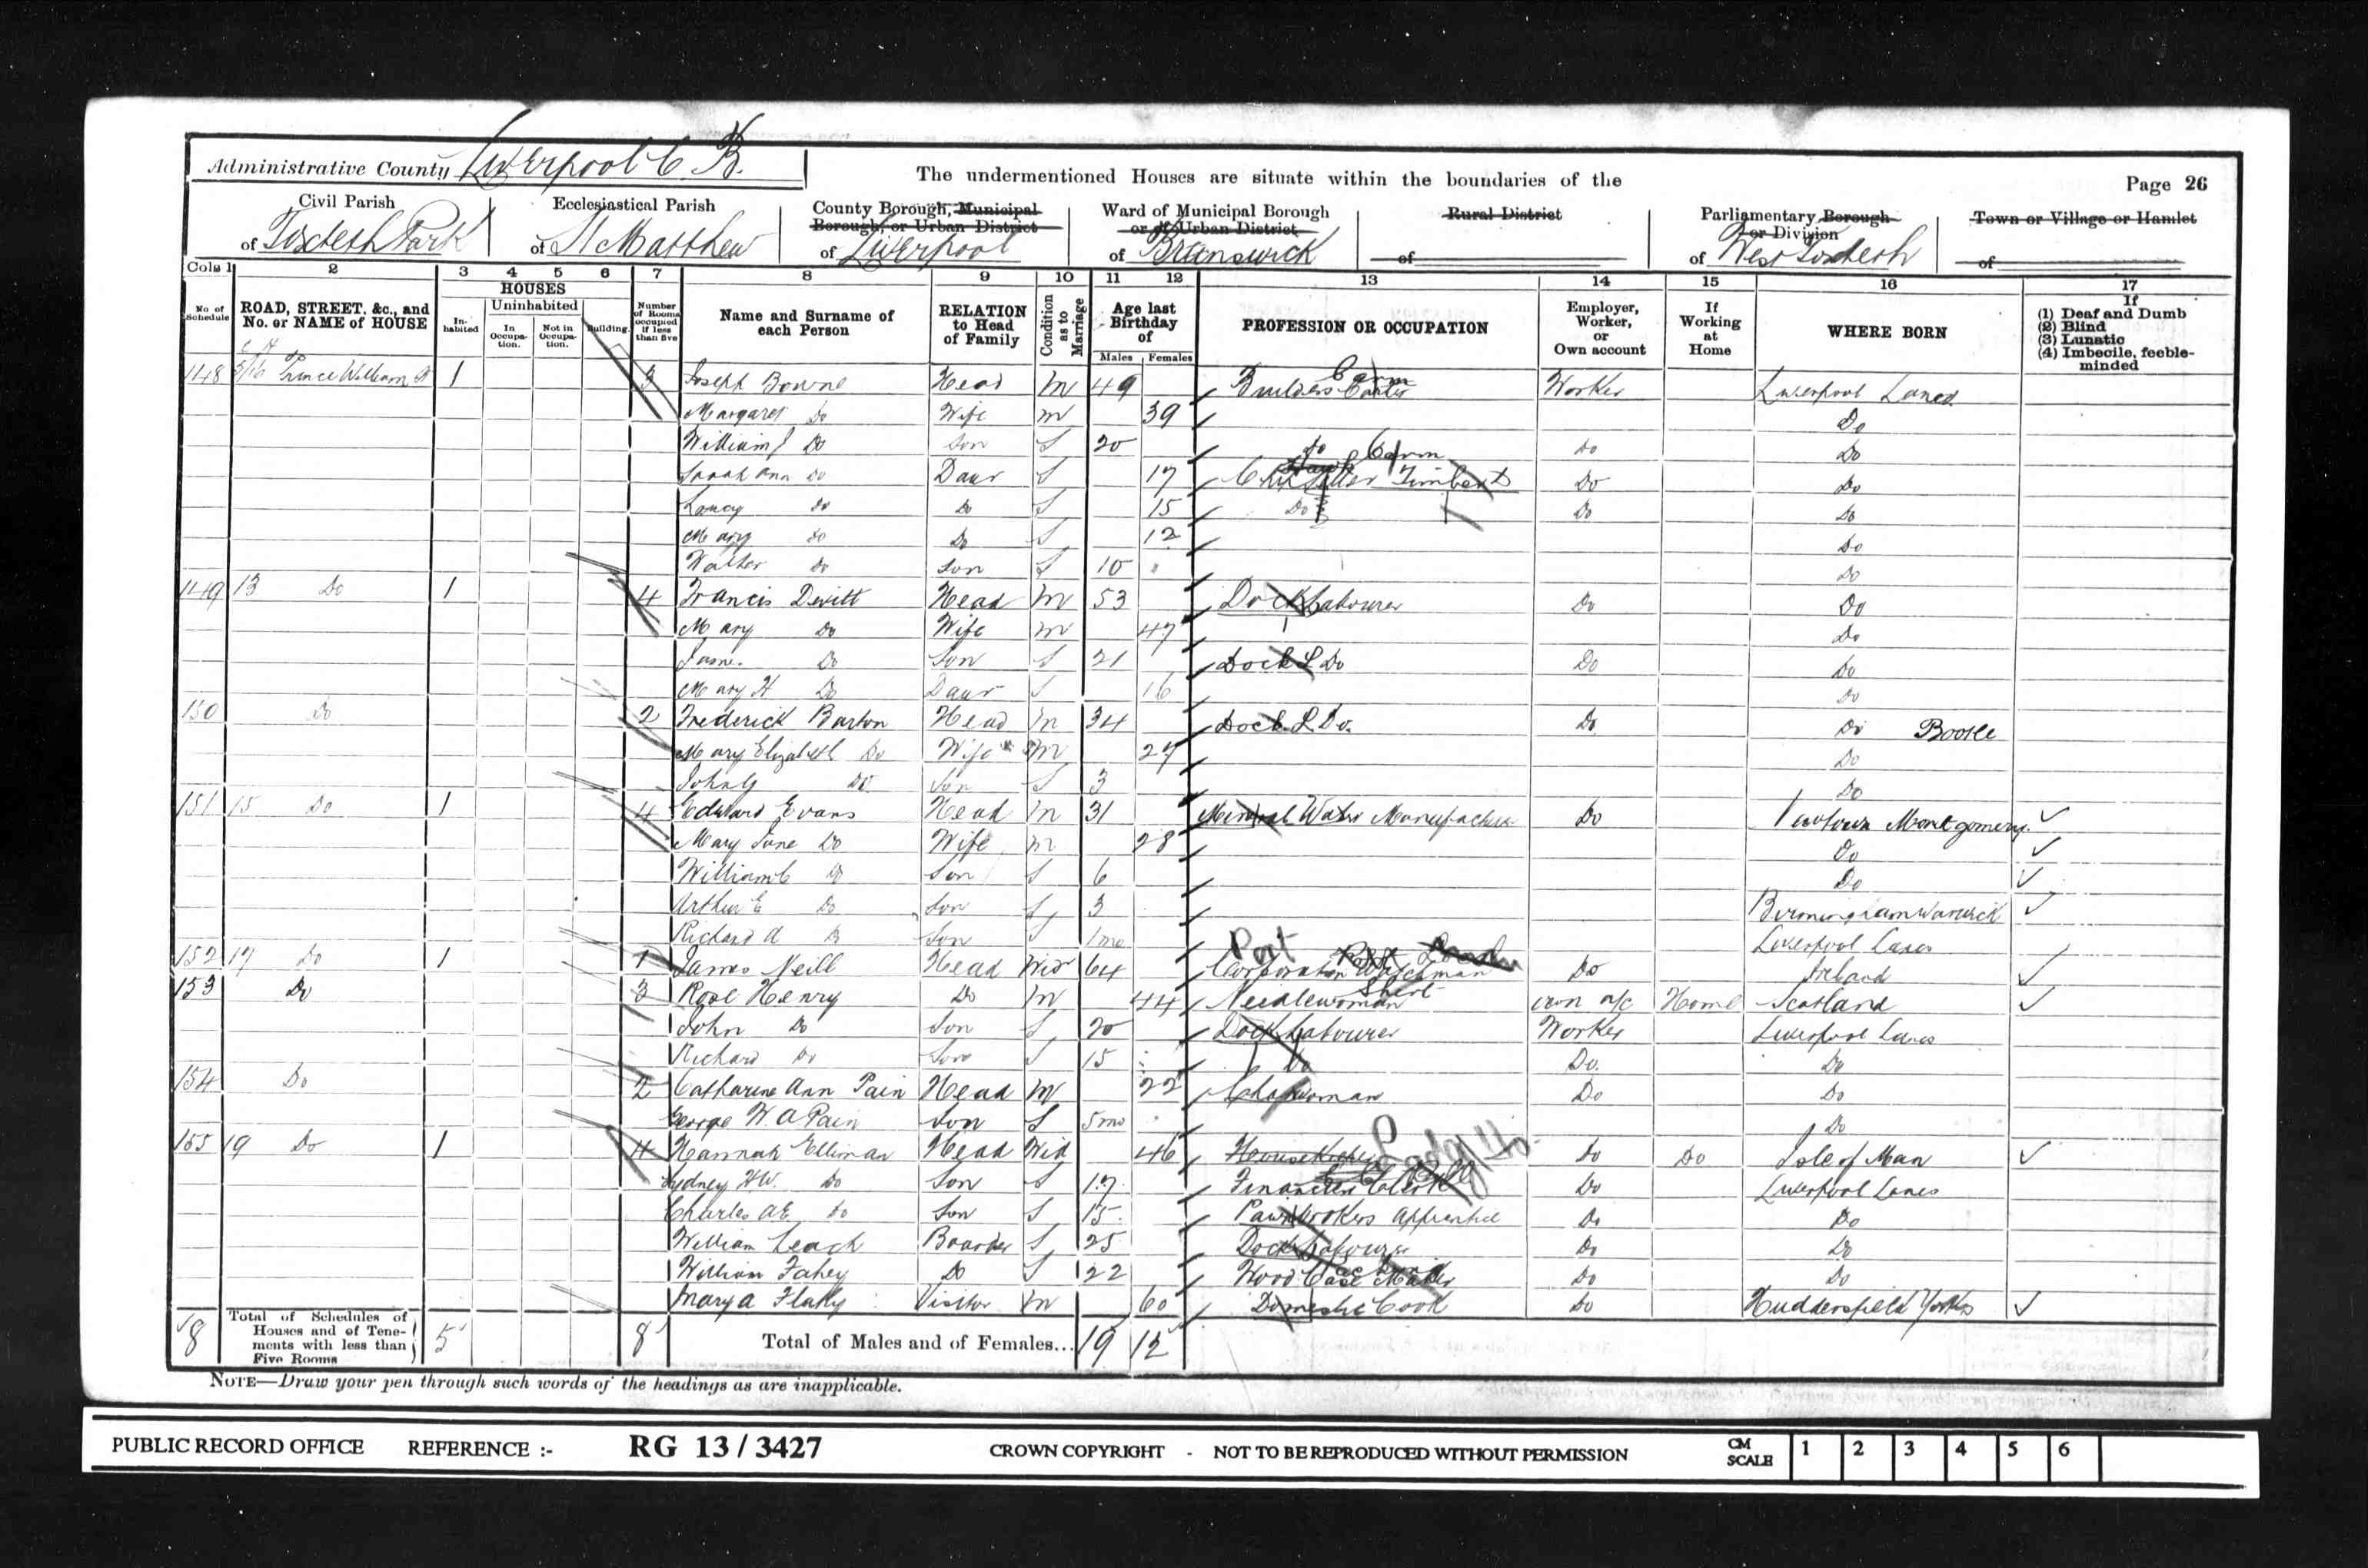 Administrative County Liverpool C. B.
The undermentioned Houses are situate within the boundaries of the
Page 26
Civil Parish of Toxteth Park
Ecclesiastical Parish of St Matthew
County Borough, Municipal Borough, or Urban District of Liverpool
Ward of Municipal Borough or of Urban District of Brunswick
Rural District of
Parliamentary Borough or Division of West Toxteth
Town or Village or Hamlet of
Cols 1 2 3 4 5 6 7 8 9 10 11 12 13 14 15 16 17
No of Schedule
ROAD, STREET, &c., and No. or NAME of HOUSE
HOUSES
Inhabited
Uninhabited
In Occupation.
Not in Occupation.
Building.
Number of Rooms occupied if less than five
Name and Surname of each Person
RELATION to Head of Family
Condition as to Marriage
Age last Birthday of
Males Females
PROFESSION OR OCCUPATION
Employer, Worker, or Own account
If Working at Home
WHERE BORN
If
(1) Deaf and Dumb
(2) Blind
(3) Lunatic
(4) Imbecile, feeble-minded
148 Prince William St 1 3 Joseph Bowne Head M 49 Builders Carter Worker Liverpool Lancs
Margaret Do Wife M 39 Do
William J Do Son S 20 Do Do Do
Sarah Ann Do Daur S 17 Do Do
Do Do S 15 Do Do Do
Mary Do Do S 12 Do
Walter Do Son S 10 Do
149 13 Do 1 4 Francis Devitt Head M 53 Dock Labourer Do Do
Mary Do Wife M 47 Do
Do Son S 21 Dock L Do Do Do
Mary H Do Daur S 16 Do
150 Do 2 Frederick Burton Head M 34 Dock L Do. Do Do Bootle
Mary Elizabeth Do Wife M 27 Do
John Do Son S 3 Do
151 15 Do 1 4 Edward Evans Head M 31 Mineral Water Manufacturer Do Newtown Montgomery
Mary Jane Do Wife M 28 Do
William C Do Son S 6 Do
Arthur E Do Son S 3 Birmingham Warwick
Richard A Do Son S 1mo Liverpool Lancs
152 17 Do 1 1 James Neill Head Wid 64 Corporation Watchman Do Ireland
153 Do 3 Rose Henry Do M 44 Needlewoman Shirt own a/c Home Scotland
John Do Son S 20 Dock Labourer Worker Liverpool Lancs
Richard Do Son S 15 Do Do. Do
154 Do 2 Catharine Ann Pain Head M 22 Charwoman Do Do
George W. A Pain Son S 5mo Do
155 19 Do 1 4 Hannah Elliman Head Wid 46 Housekeeper Do Do Isle of Man
Sydney H W. Do Son S 17 Financiers Clerk Do Liverpool Lancs
Charles A E Do Son S 15 Pawnbrokers Apprentice Do Do
William Leack Boarder S 25 Dock Labourer Do Do
William Fahey Do S 22 Wood Case Maker Do Do
Mary A Flahy Visitor M 60 Domestic Cook Do Huddersfield Yorks
8 Total of Schedules of Houses and of Tenements with less than Five Rooms 5 8 Total of Males and of Females... 19 12
NOTE—Draw your pen through such words of the headings as are inapplicable.
PUBLIC RECORD OFFICE REFERENCE :- RG 13 / 3427 CROWN COPYRIGHT - NOT TO BE REPRODUCED WITHOUT PERMISSION CM SCALE 1 2 3 4 5 6